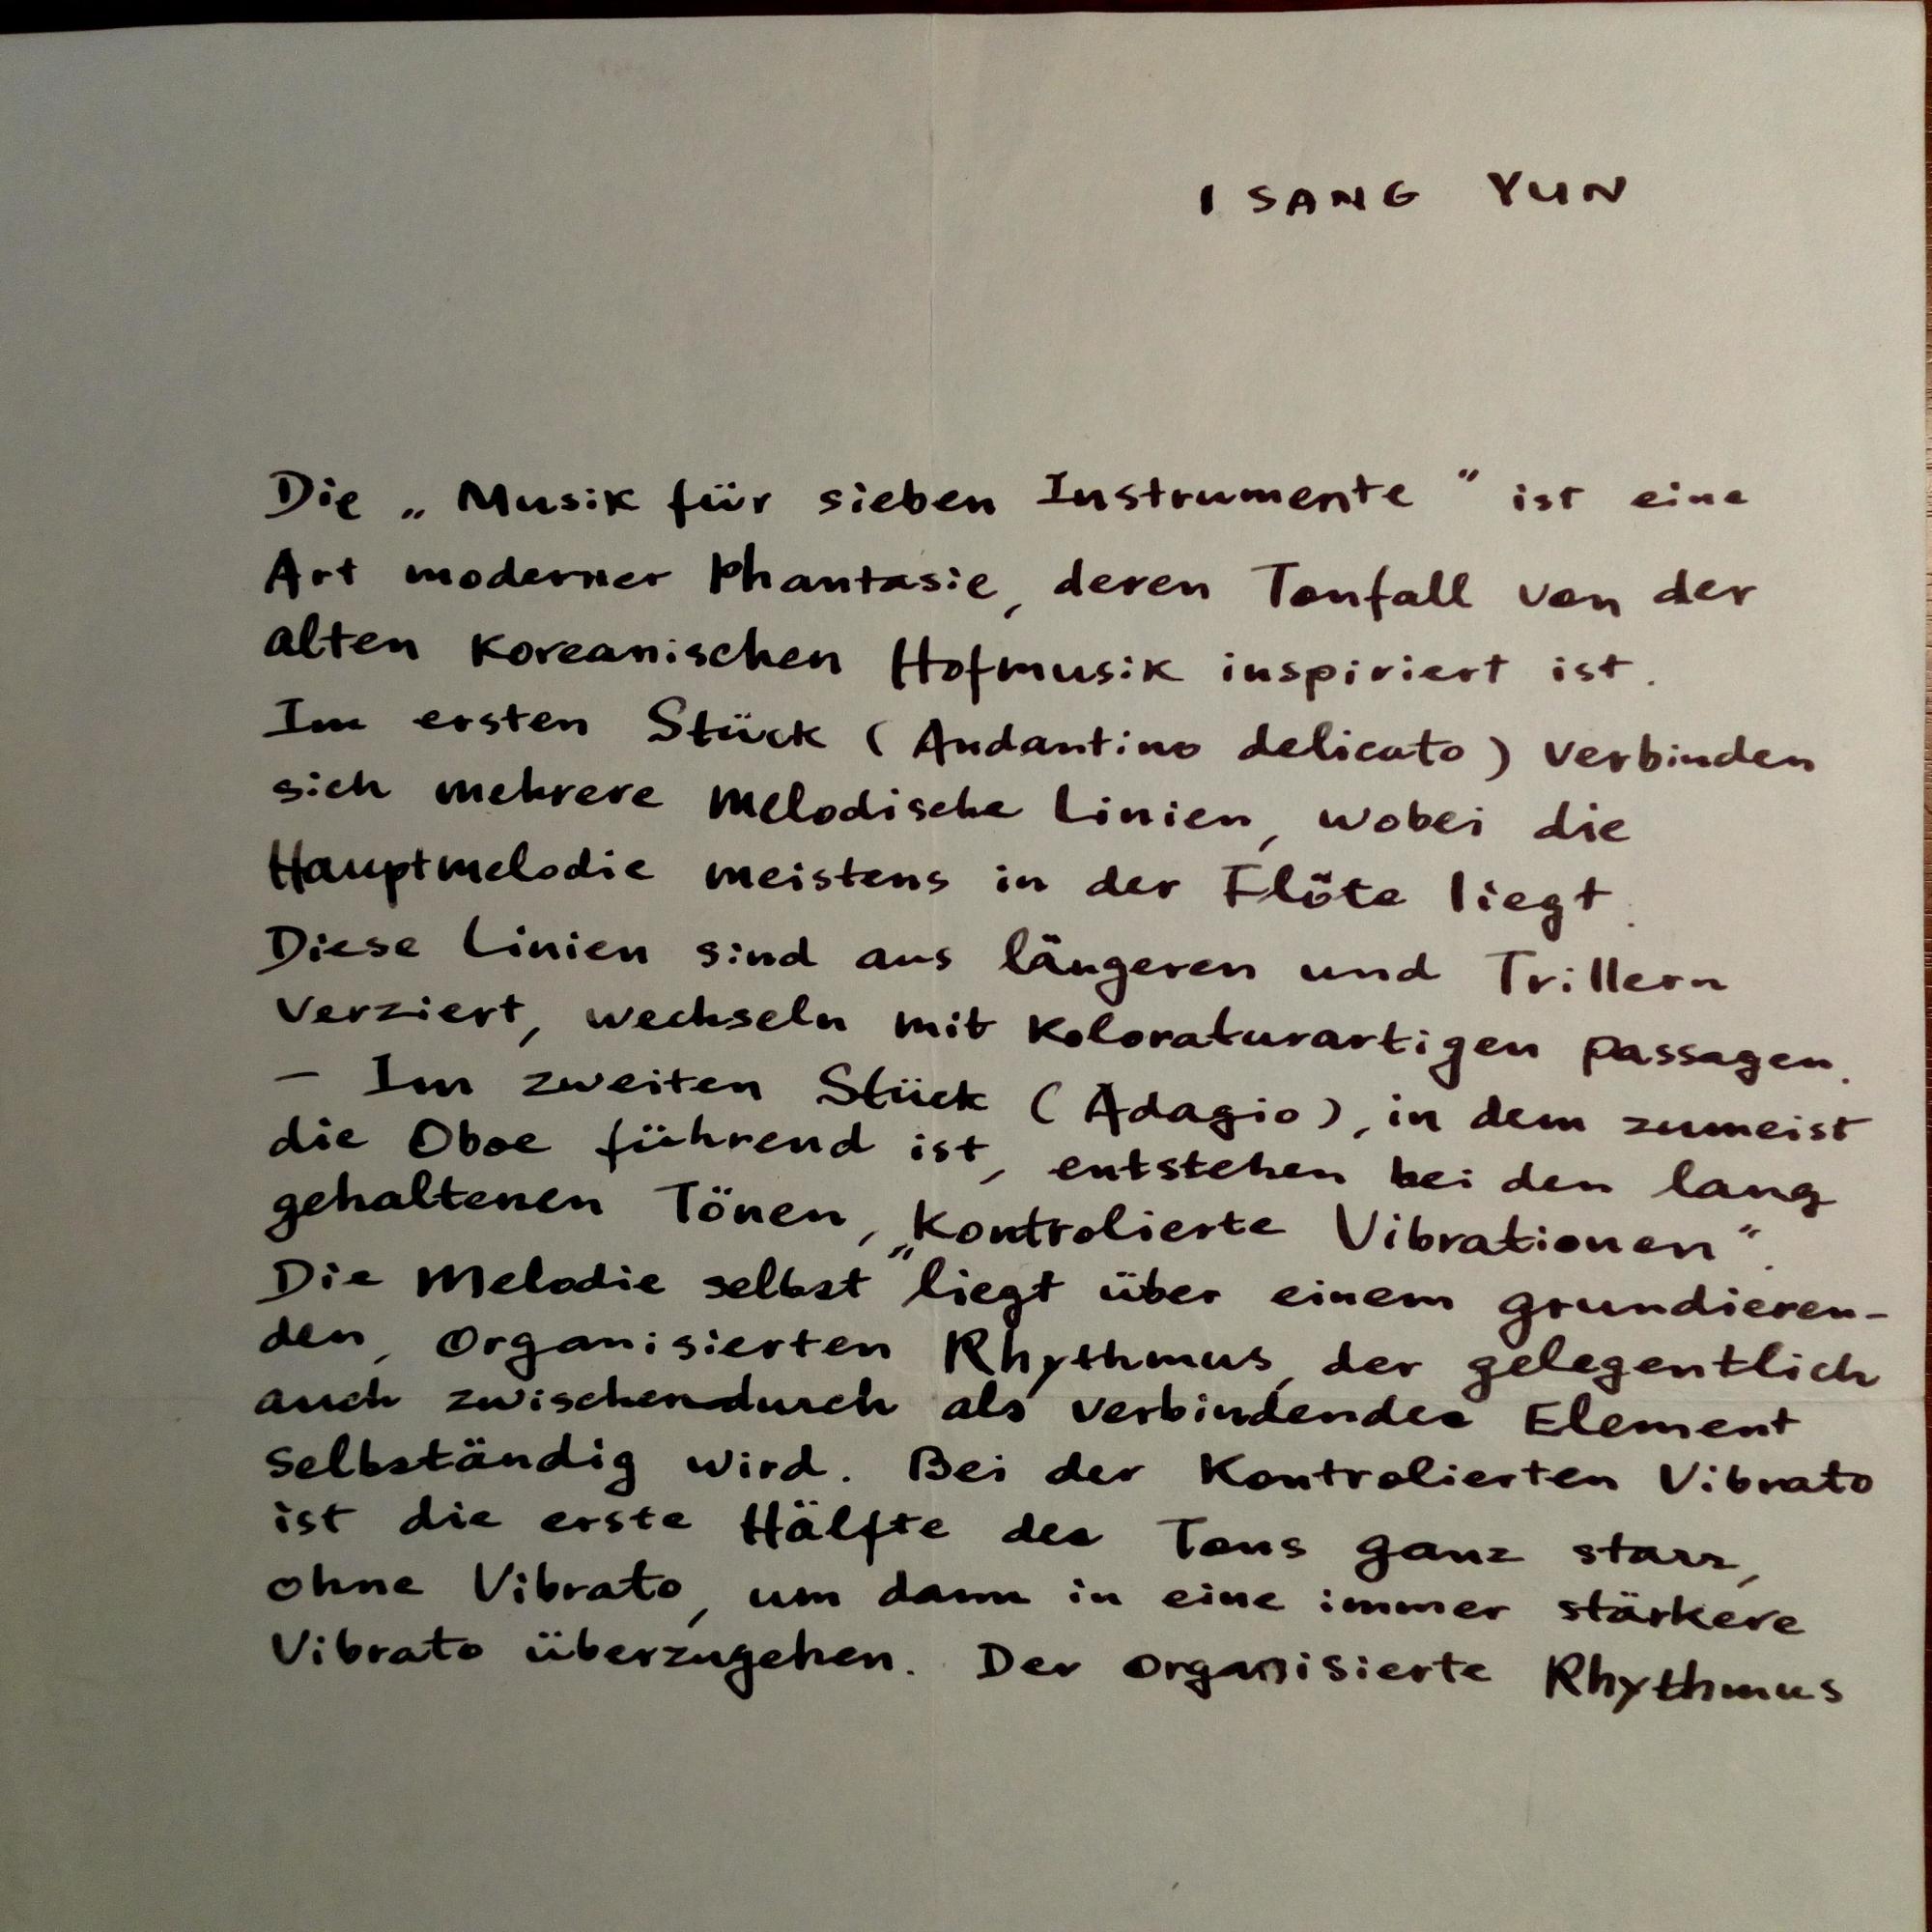 ISANG YUN
Die „Musik für sieben Instrumente" ist eine
Art moderner Phantasie, deren Tonfall von der
alten Koreanischen Hofmusik inspiriert ist.
Im ersten Stück (Andantino delicato) verbinden
sich mehrere melodische Linien, wobei die
Hauptmelodie meistens in der Flöte liegt.
Diese Linien sind aus längeren und Trillern
verziert, wechseln mit Koloraturartigen passagen.
– Im zweiten Stück (Adagio), in dem zumeist
die Oboe führend ist, entstehen bei den lang
gehaltenen Tönen, „Kontrolierte Vibrationen".
Die Melodie selbst liegt über einem grundieren-
den, organisierten Rhythmus, der gelegentlich
auch zwischendurch als verbindendes Element
selbständig wird. Bei der Kontrolierten Vibrato
ist die erste Hälfte des Tons ganz starr,
ohne Vibrato, um dann in eine immer stärkere
Vibrato überzugehen. Der organisierte Rhythmus